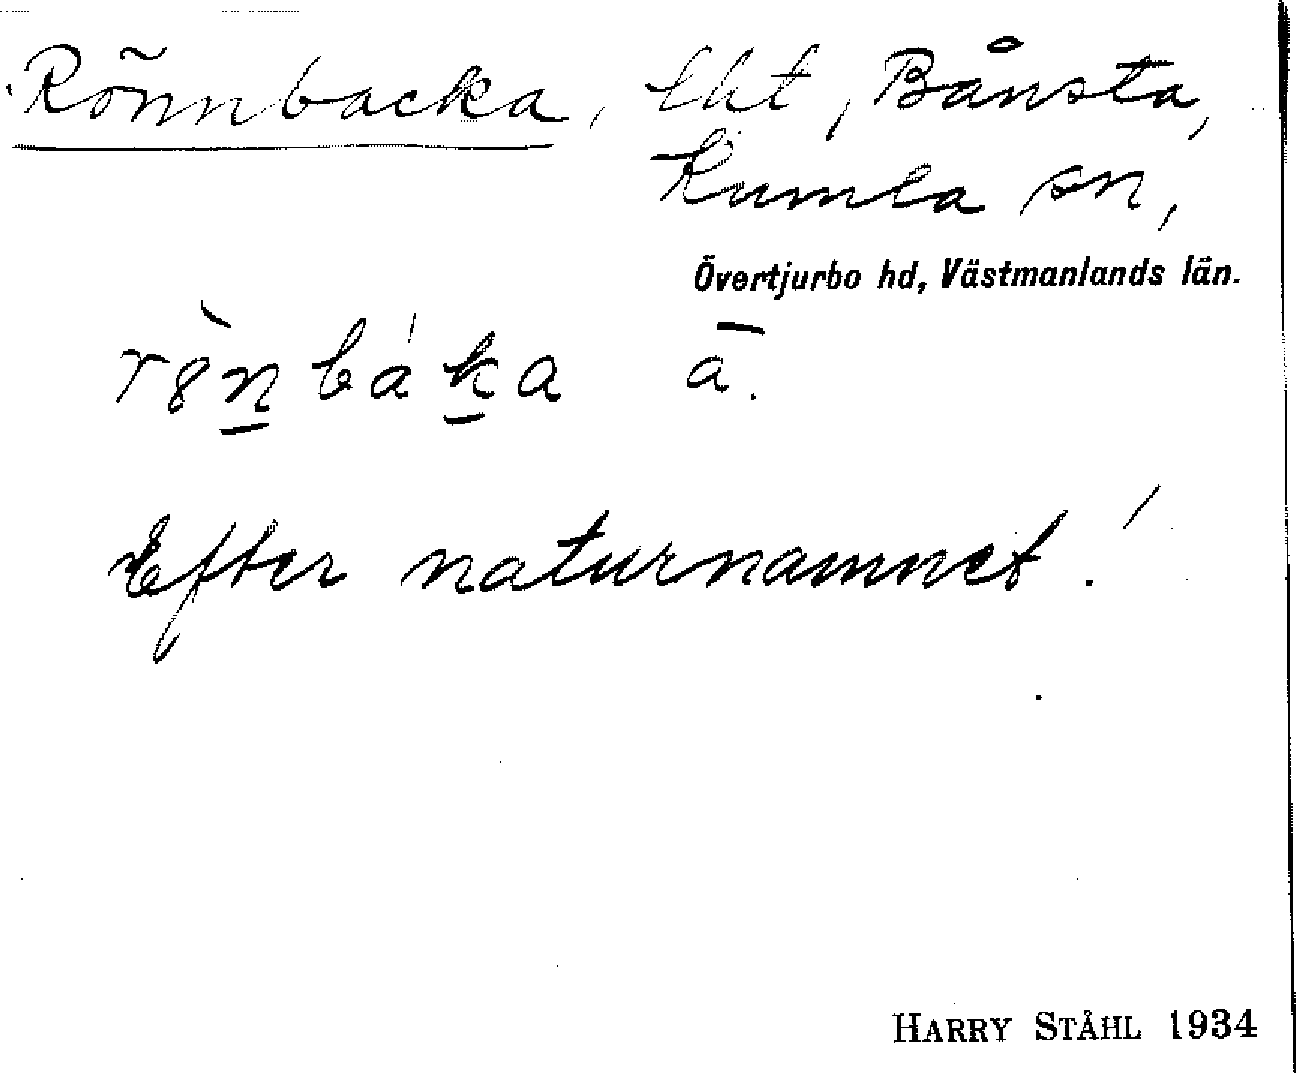 Rönnbacka, lht, Bånsta,
Kumla sn,
Övertjurbo hd, Västmanlands län.
r8̀n̲bák̲a ā.
Efter naturnamnet!
HARRY STÅHL 1934